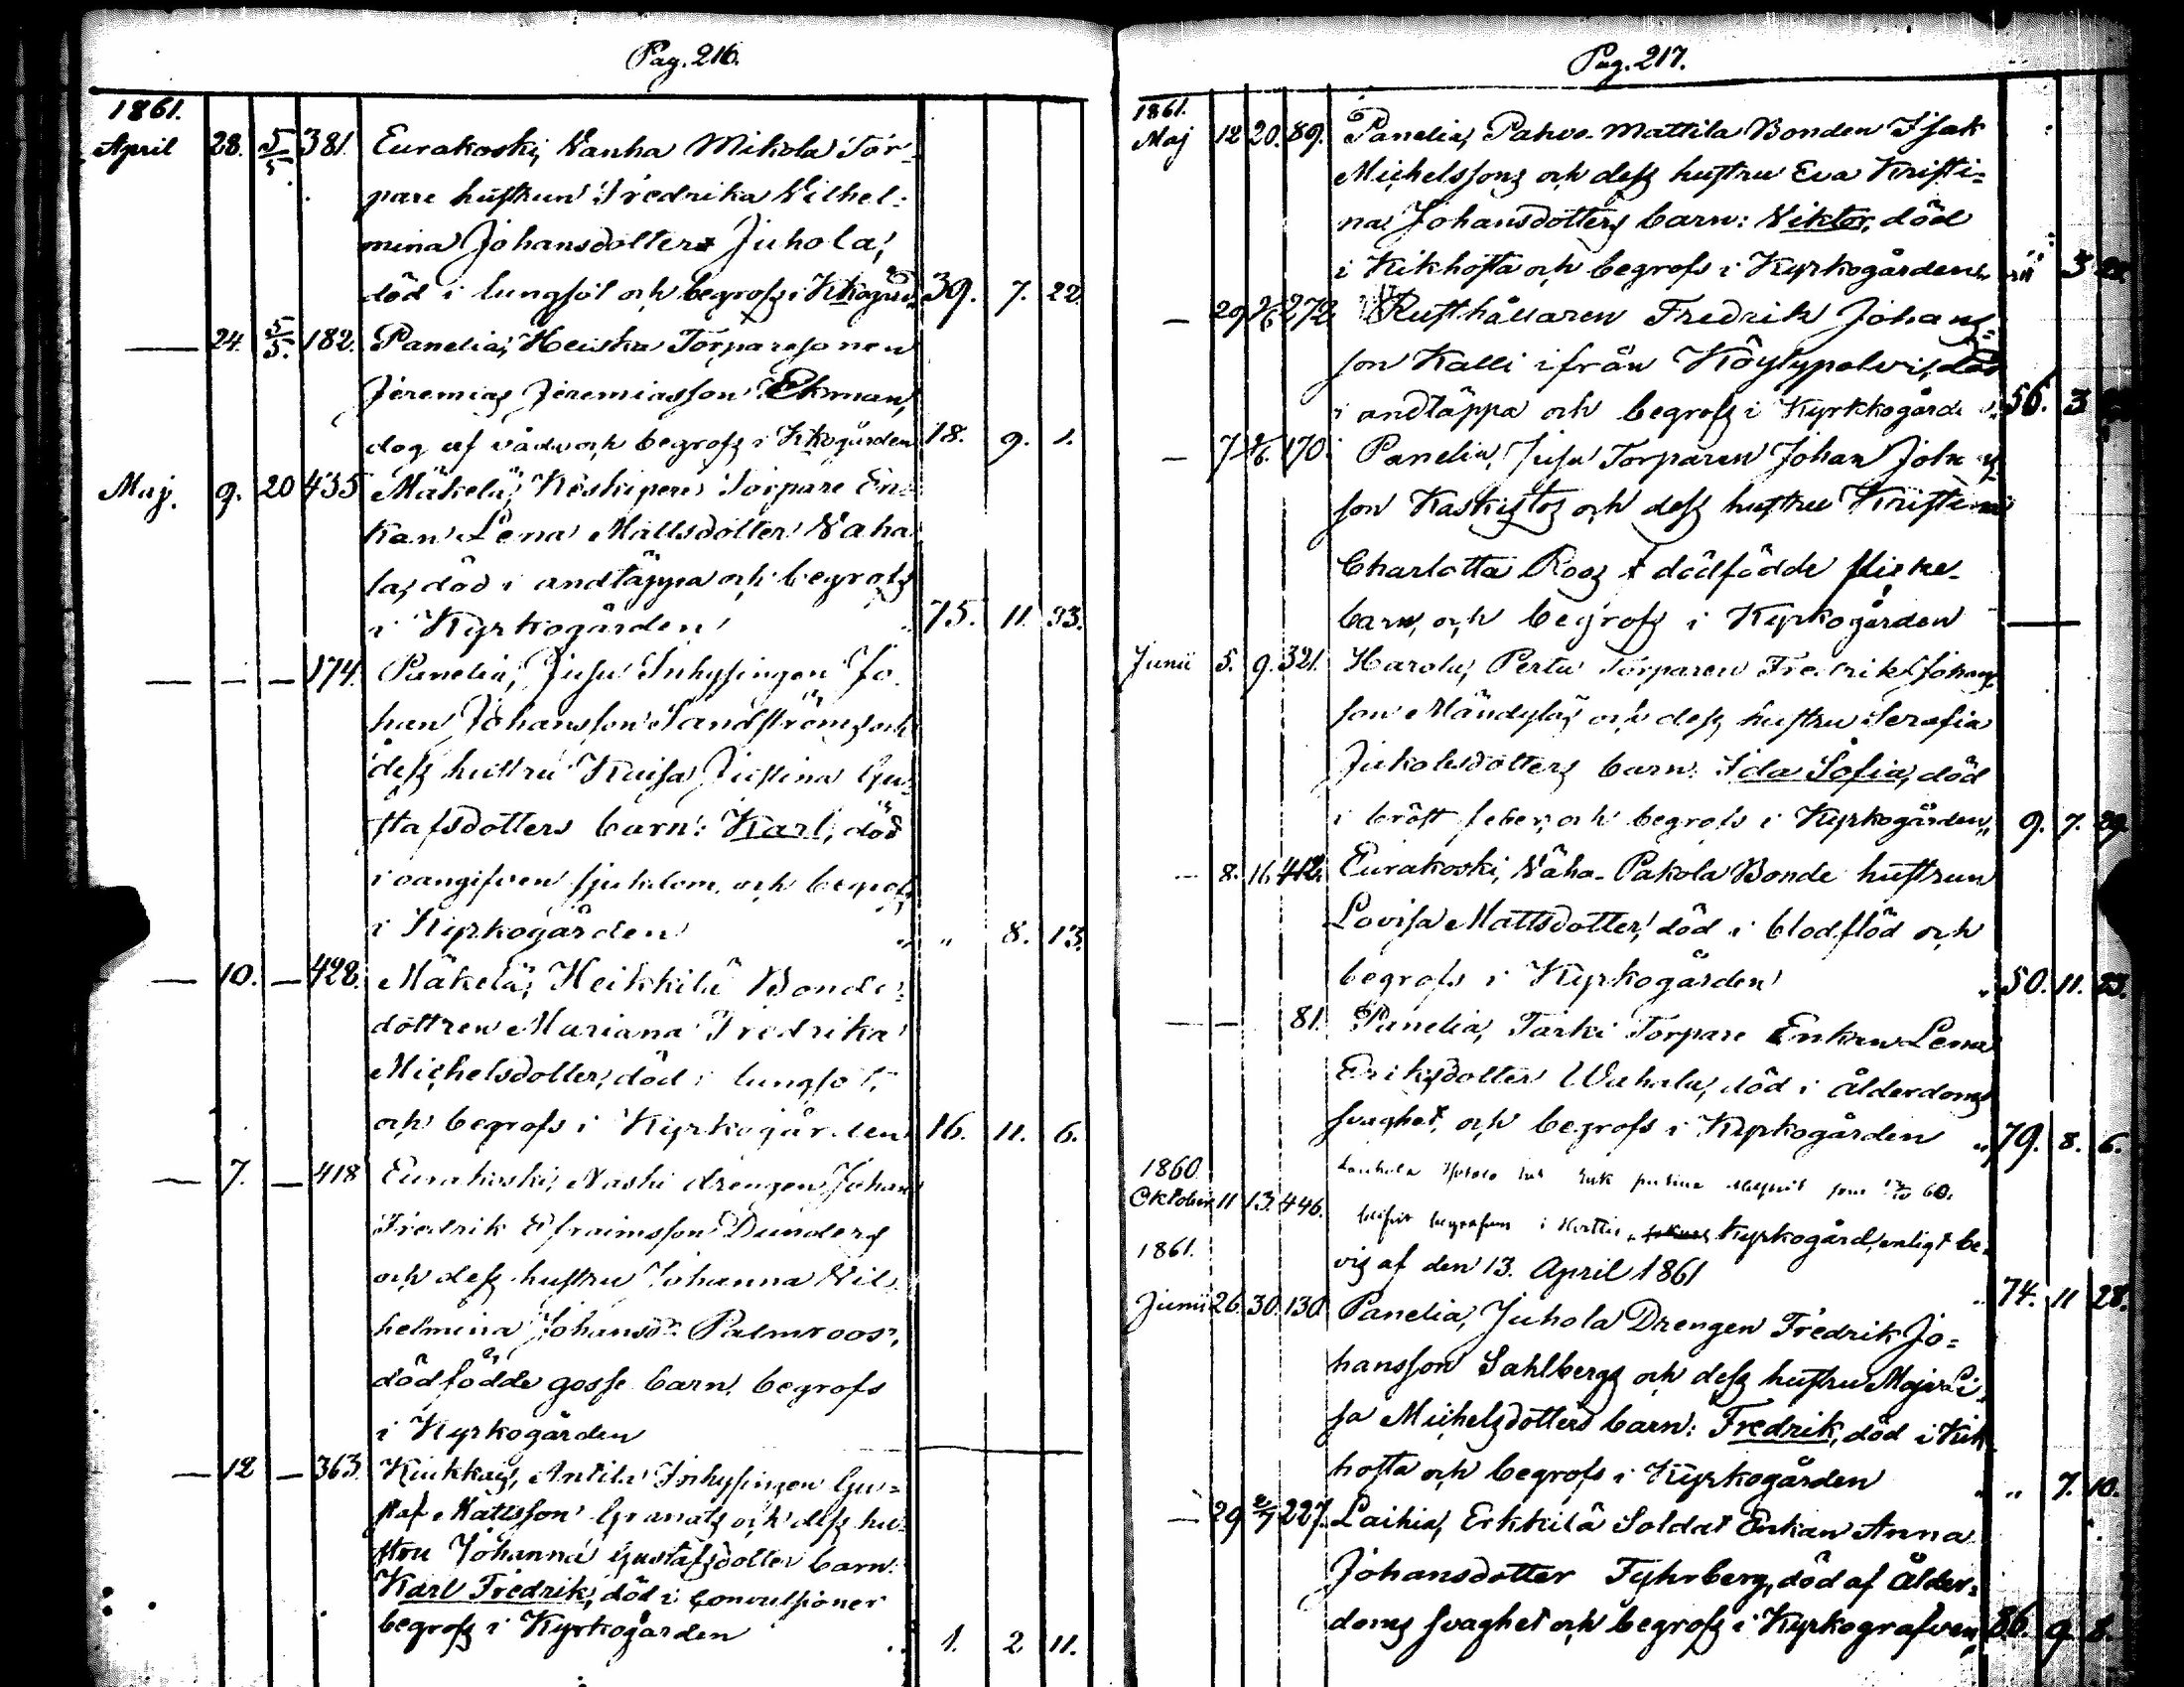 Pag. 216.
1861.
April 28. 5/5. 381. Eurakoski, Vanha Mikola Tor-
pare hustrun Fredrika Vilhel-
mina Johansdotter Juhola,
död i lungsot och begrofs i Kkogård. 39. 7. 22.
— 24. 5/5. 182. Panelia, Heiska Torparesonen
Jeremias Jeremiasson Ekman,
dog af våda och begrofs i Kkogården 18. 9. 1.
Maj. 9. 20 435 Mäkelä, Keskipere Torpare En-
kan Lena Mattsdotter Vaha
la, död i andtäppa och begrofs
i Kyrkogården „ 75. 11. 23.
— — — 174. Panelia, Jusu Inhysingen Jo
han Johansson Sandströms och
dess hustru Kaisa Justina Gu-
stafsdotters barn: Karl, död
i oangifven sjukdom och begrofs
i Kyrkogården „ „ 8. 13.
— 10. — 428. Mäkelä, Heikkilä Bonde-
dottren Mariana Fredrika
Michelsdotter, död i lungsot,
och begrofs i Kyrkogården 16. 11. 6.
— 7. — 418 Eurakoski, Naski drengen Johan
Fredrik Efraimsson Dunders
och dess hustru Johanna Vil
helmina Johansd:r Palmroos,
dödfödde gosse barn, begrofs
i Kyrkogården
— 12 — 363. Kiukkais, Antila Inhysingen Gu-
staf Mattsson Granats och dess hu-
stru Johanna Gustafsdotter barn:
Karl Fredrik, död i convulsioner
begrofs i Kyrkogården „ 1. 2 11.
Pag. 217.
1861.
Maj 12 20. 89. Panelia, Pahvo-Mattila Bonden Isak
Michelssons och dess hustru Eva Kristi-
na Johansdotters barn: Viktor, död
i Kikhosta och begrofs i Kyrkogården 3
— 29 2/6 272. Rusthållaren Fredrik Johans-
son Kalli ifrån Köylypolvi, död
i andtäppa och begrofs i Kyrkkogård 56. 3
— 7 2/6. 170. Panelia, Jusu Torparen Johan Johans
son Kaskistos och dess hustru Kristina
Charlotta Roos dödfödde flicke-
barn, och begrofs i Kyrkogården —
Junii 5. 9. 321. Harola, Perta Torparen Fredrik Johans
son Mändyläs och dess hustru Serafia
Jakobsdotters barn: Ida Sofia, död
i bröst feber, och begrofs i Kyrkogården „ 9. 7. 29.
— 8. 16. 412. Eurakoski, Vähä-Pakola Bonde hustrun
Lovisa Mattsdotter, död i blodflöd och
begrofs i Kyrkogården „ 50. 11. 23.
— — 81. Panelia, Tarki Torpare Enkan Lena
Eriksdotter Wahala, död i Ålderdoms
svaghet, och begrofs i Kyrkogården „ 79. 8. 6.
1860.
Oktober 11 13. 446. som 60.
blifvit begrafven i Kyrkogård, enligt be-
vis af den 13. April 1861 „ 74. 11 28.
1861.
Junii 26. 30. 130 Panelia, Juhola Drengen Fredrik Jo-
hansson Sahlbergs och dess hustru Maja Li
sa Michelsdotters barn: Fredrik, död i Kik
hosta och begrofs i Kyrkogården „ „ 7. 10.
— 29 2/7 227. Laihia, Erkkilä Soldat Enkan Anna
Johansdotter Fyhrberg, död af Ålder-
doms svaghet och begrofs i Kyrkografven „ 86. 9. 8.